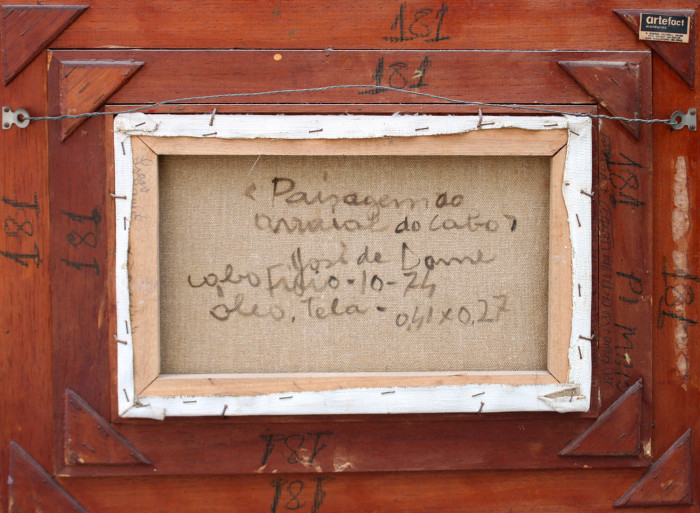 181
artefact
181
"Paisagem do
arraial do Cabo"
José de Dome
cabo Frio-10-74
óleo, Tela - 0,41x0,27
181
181
181
181
181
181